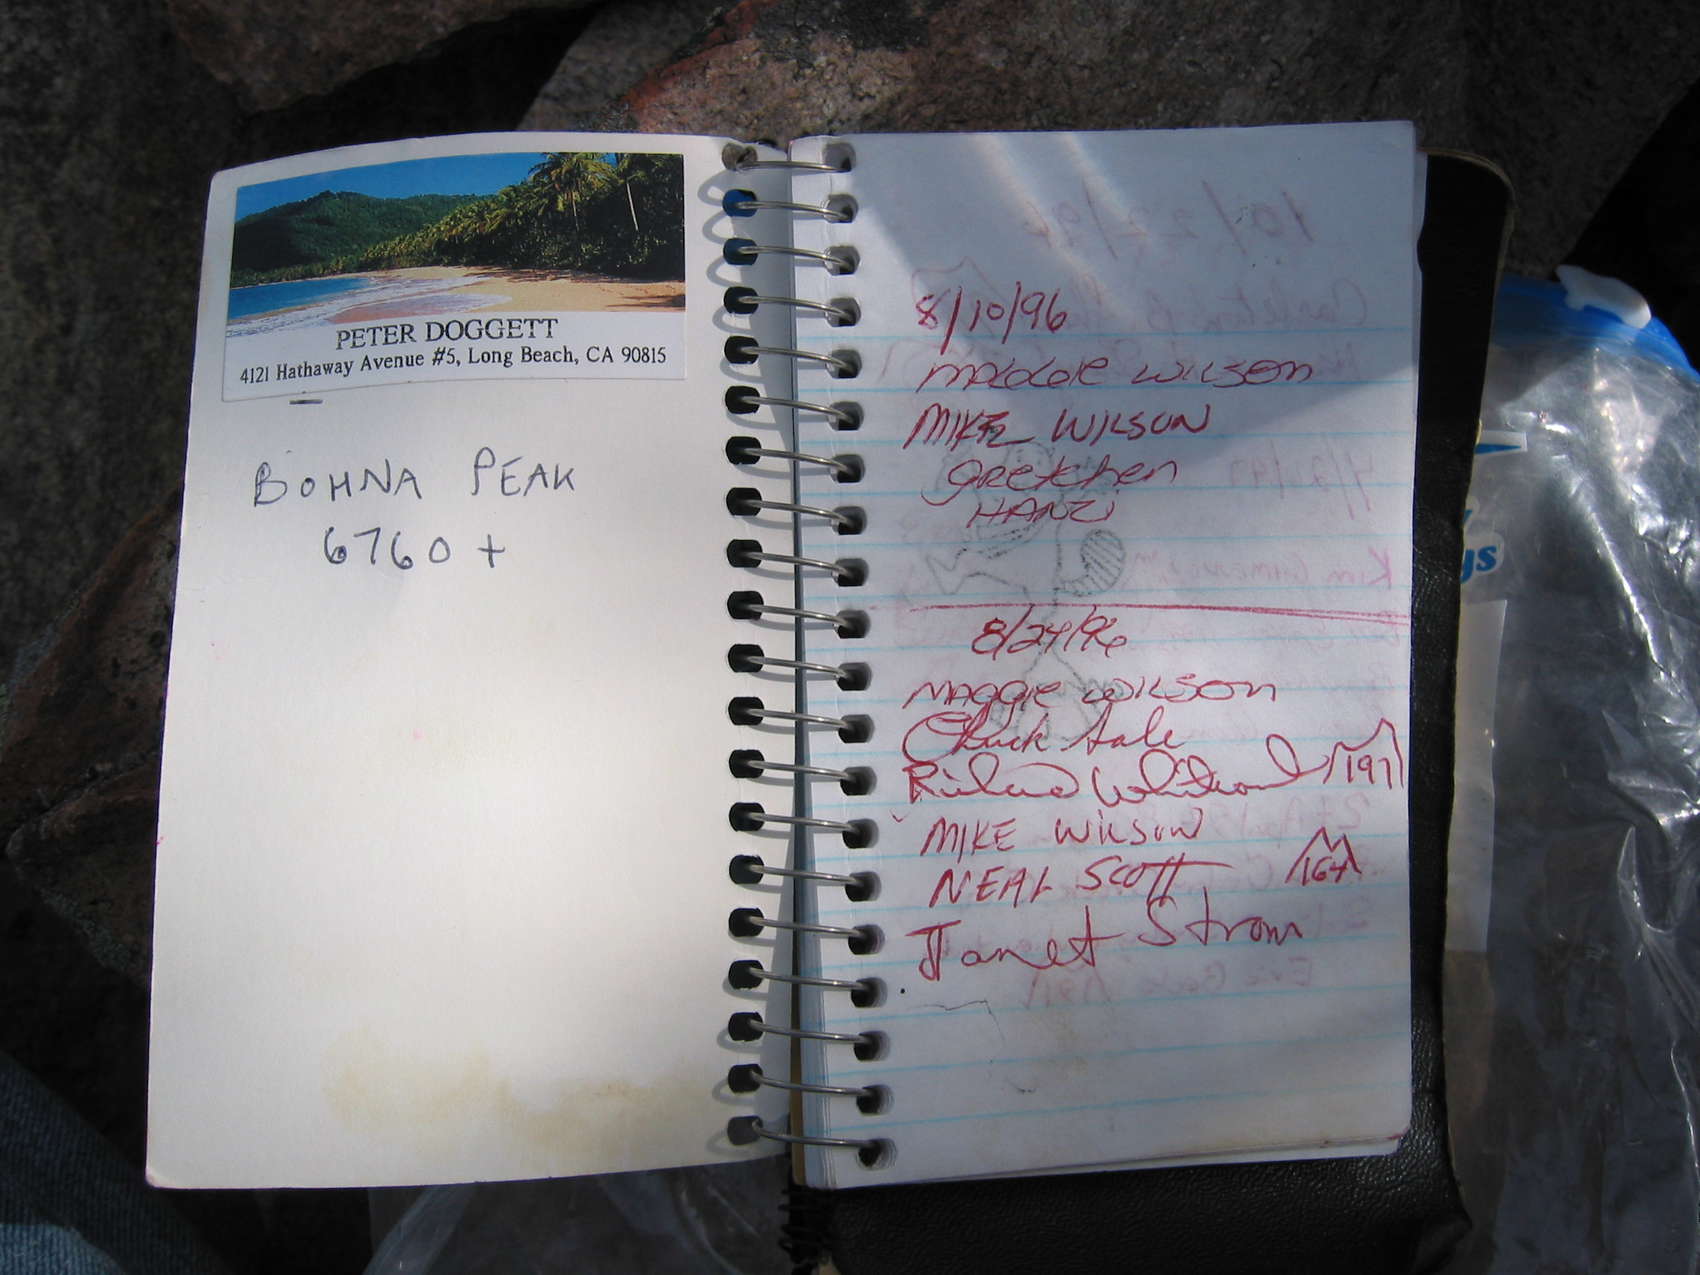 PETER DOGGETT
4121 Hathaway Avenue #5, Long Beach, CA 90815
BOHNA PEAK
6760 +
8/10/96
MAGGIE WILSON
MIKE WILSON
GRetchen
HANZi
8/24/96
MAGGIE WILSON
Chuck
Richard 197
MIKE WILSON
NEAL SCOTT 164
Janet Strom
gs